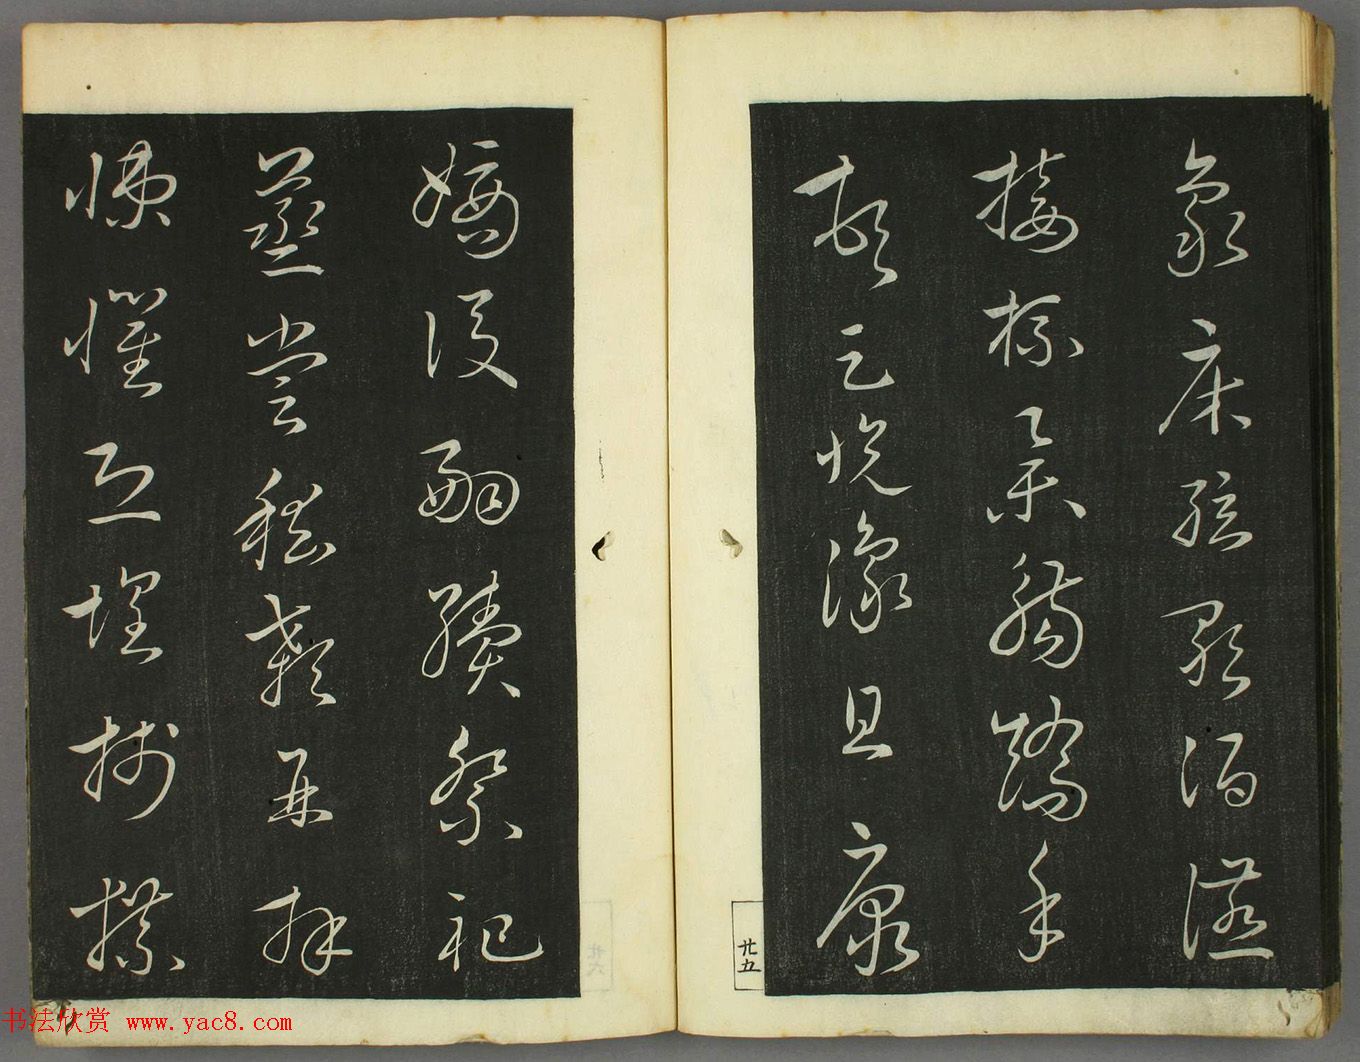 象床弦歌酒讌
接杯舉觴矯手
頓足悅豫且康
廿五
嫡後嗣續祭祀
蒸嘗稽顙再拜
悚懼恐惶牋牒
廿六
书法欣赏 www.yac8.com